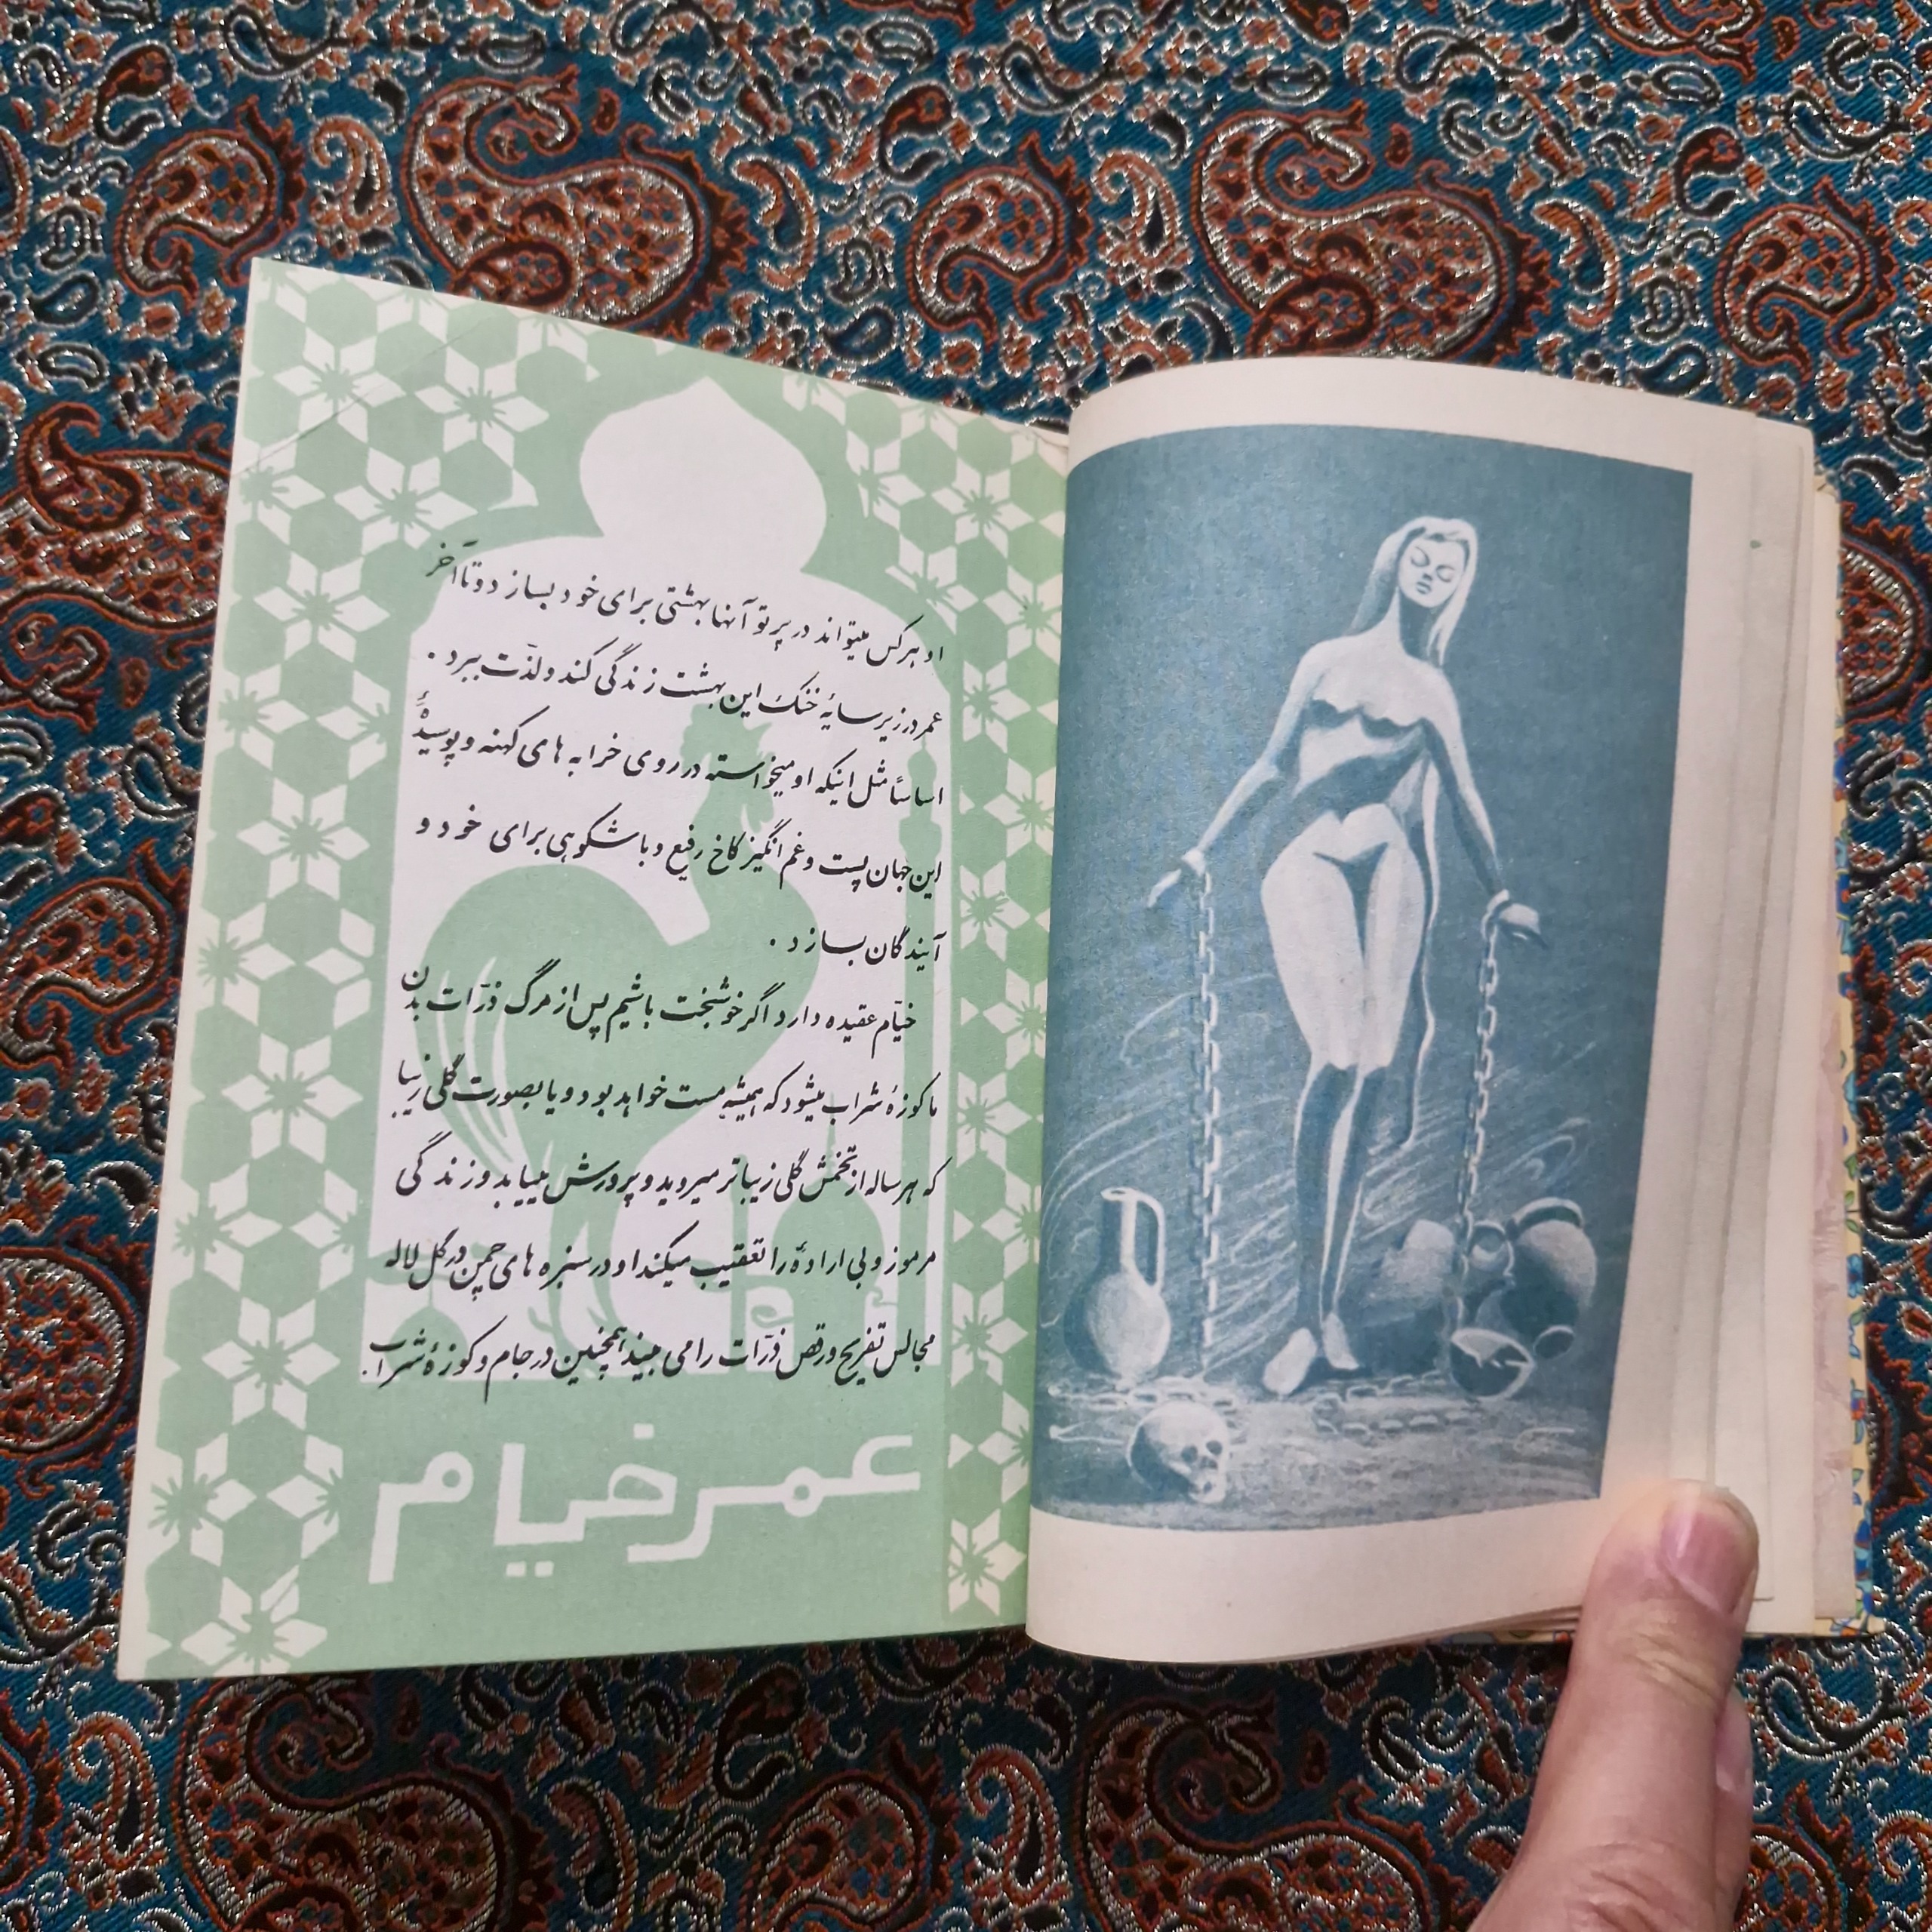 او هرکس میتواند در پرتو آنها بهشتی برای خود بسازد و تا آخر
عمر در زیر سایهٔ خنک این بهشت زندگی کند و لذّت ببرد .
اساساً مثل اینکه او میخواسته در روی خرابه های کهنه و پوسیدهٔ
این جهان پست و غم انگیز کاخ رفیع و باشکوهی برای خود و
آیندگان بسازد .
خیّام عقیده دارد اگر خوشبخت باشیم پس از مرگ ذرّات بدن
ما کوزهٔ شراب میشود که همیشه مست خواهد بود و یا بصورت گلی زیبا
که هر ساله از تخمش گلی زیباتر میروید و پرورش مییابد و زندگی
مرموز و بی اراده را تعقیب میکند او در سبزه های چمن در گل لاله
مجالس تفریح و رقص ذرّات را می بیند همچنین در جام و کوزهٔ شراب .
عمر خیام